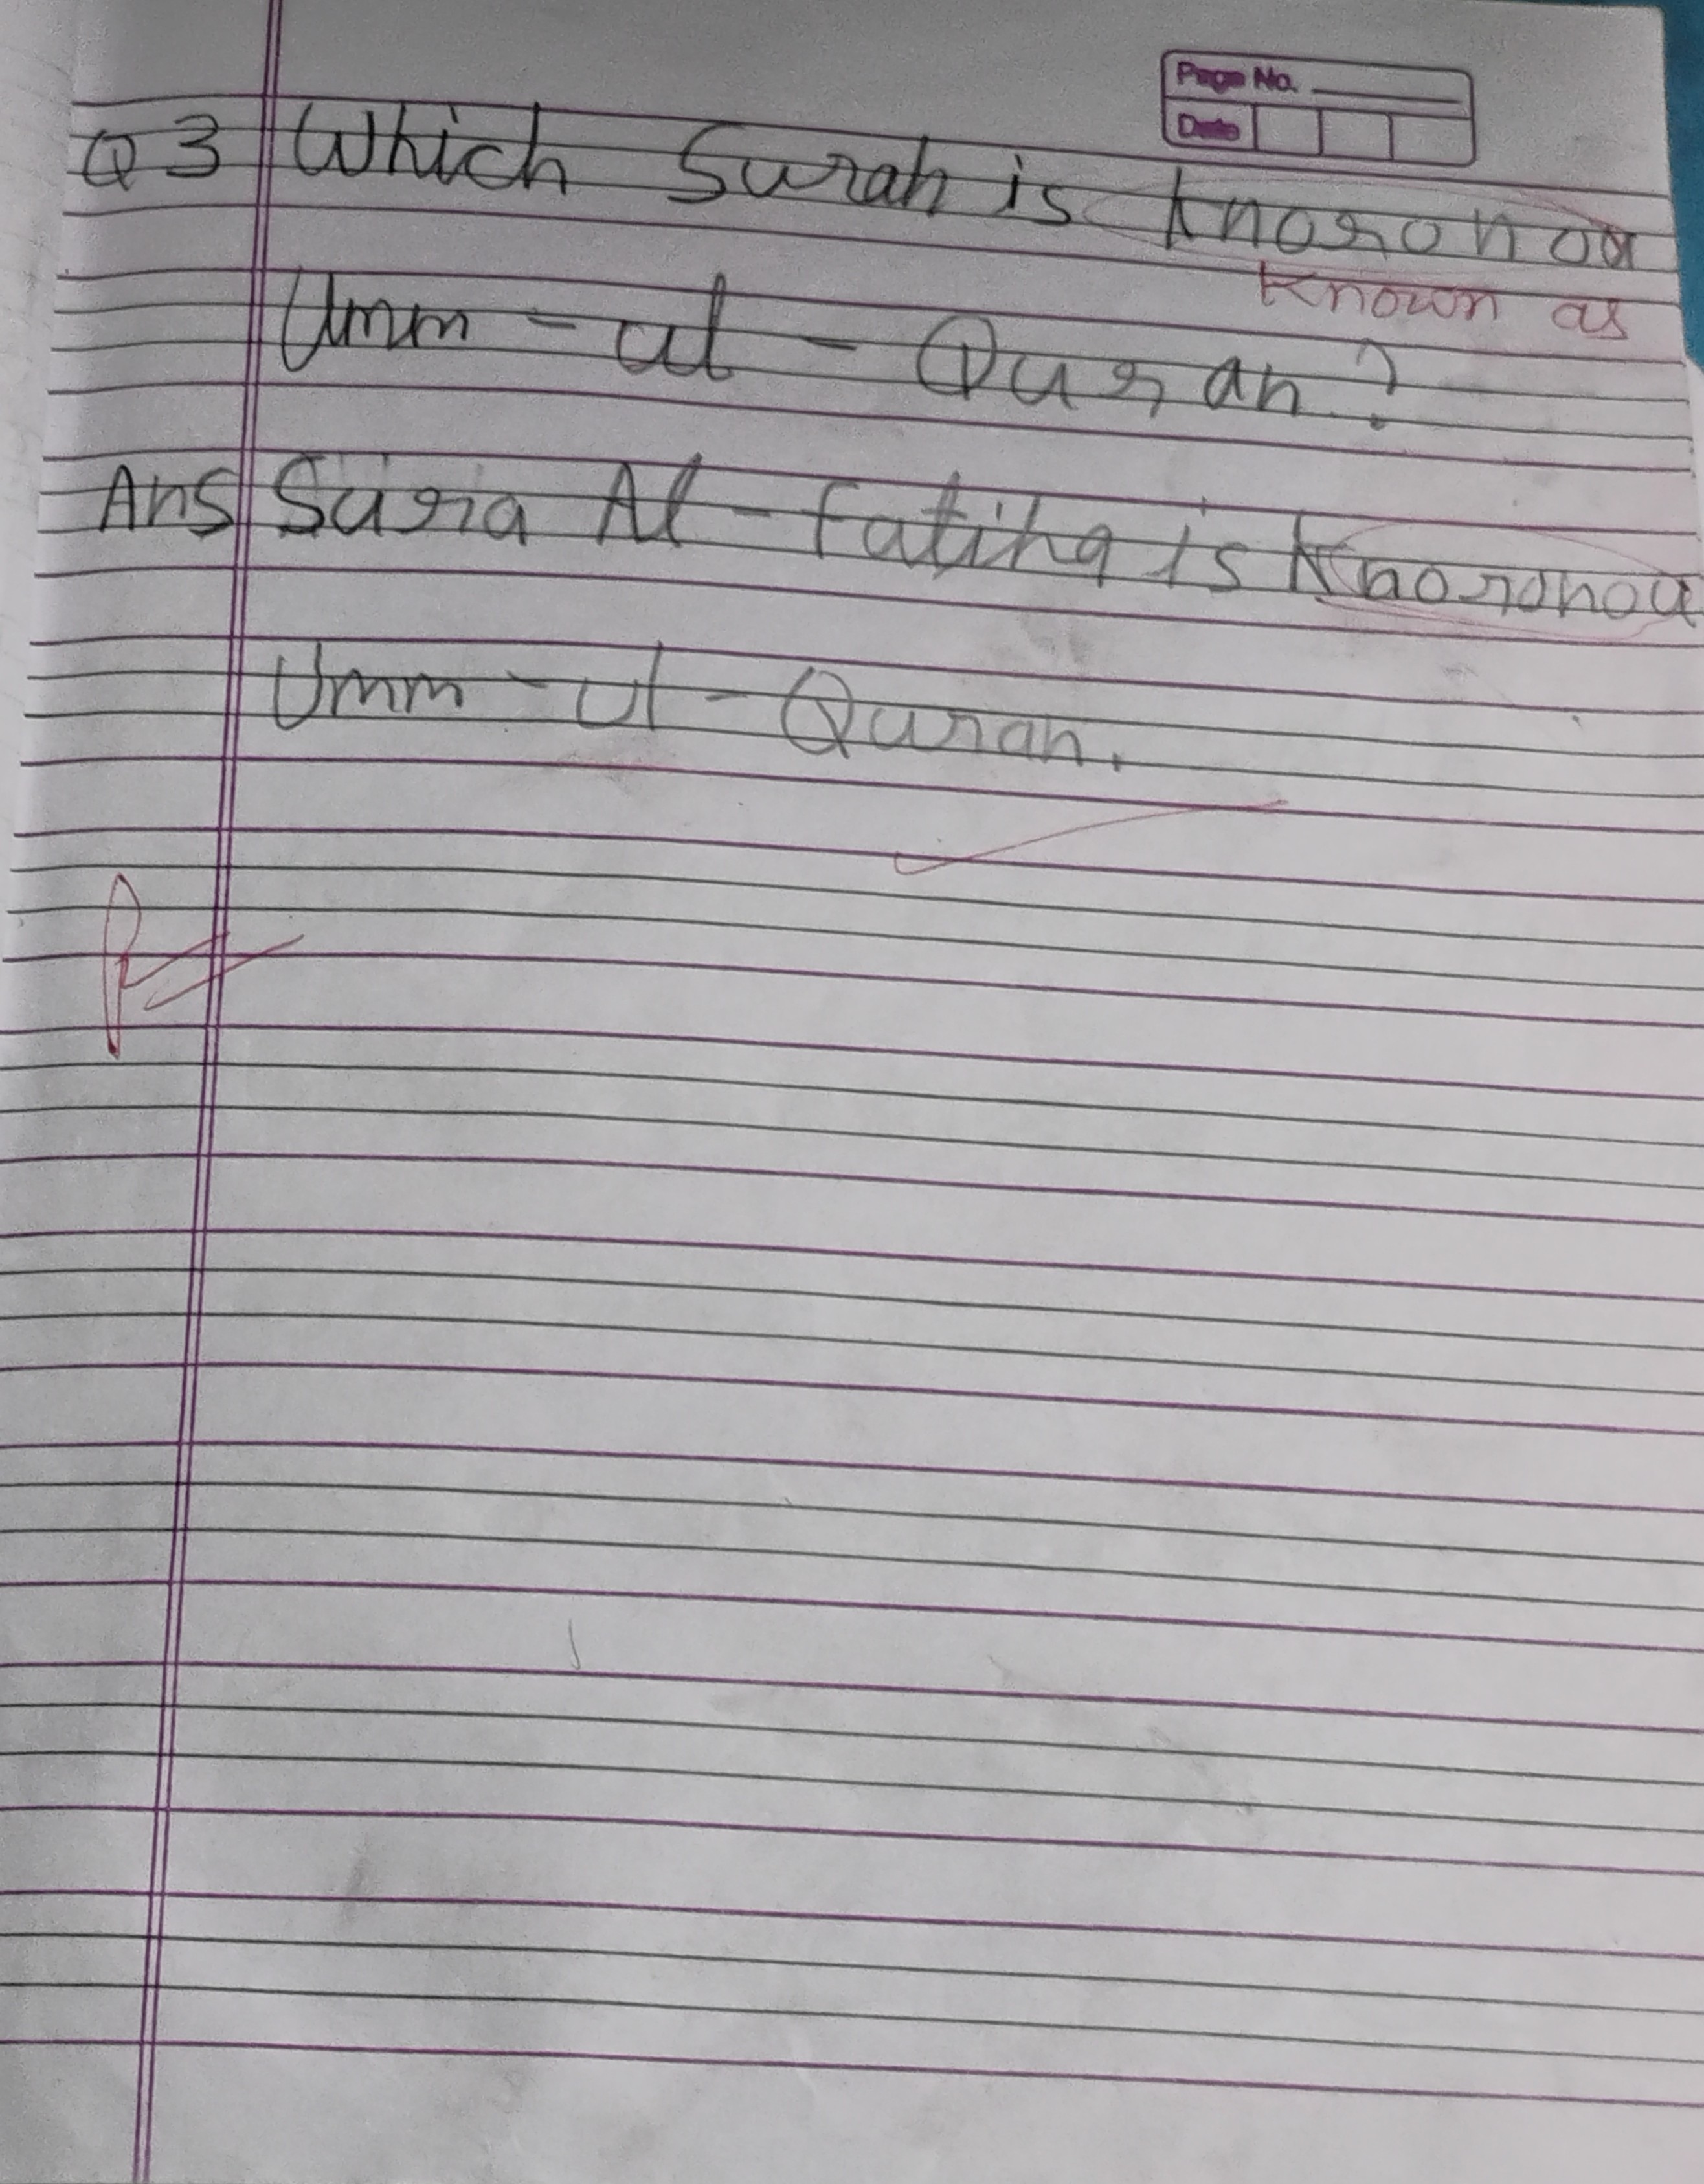 Page No.
Date
Q 3 Which Surah is Knoronoa
Known as
Umm - ul - Quran?
Ans Suria Al - Fatiha is Knoronoa
Umm - ul - Quran.